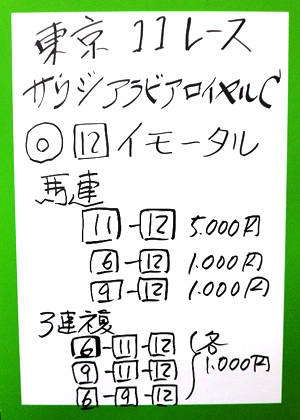 東京 11レース
サウジアラビアロイヤルC
◎ 12 イモータル
馬連
11-12 5.000円
6-12 1.000円
9-12 1.000円
3連複
6-11-12
9-11-12 各1.000円
6-9-12